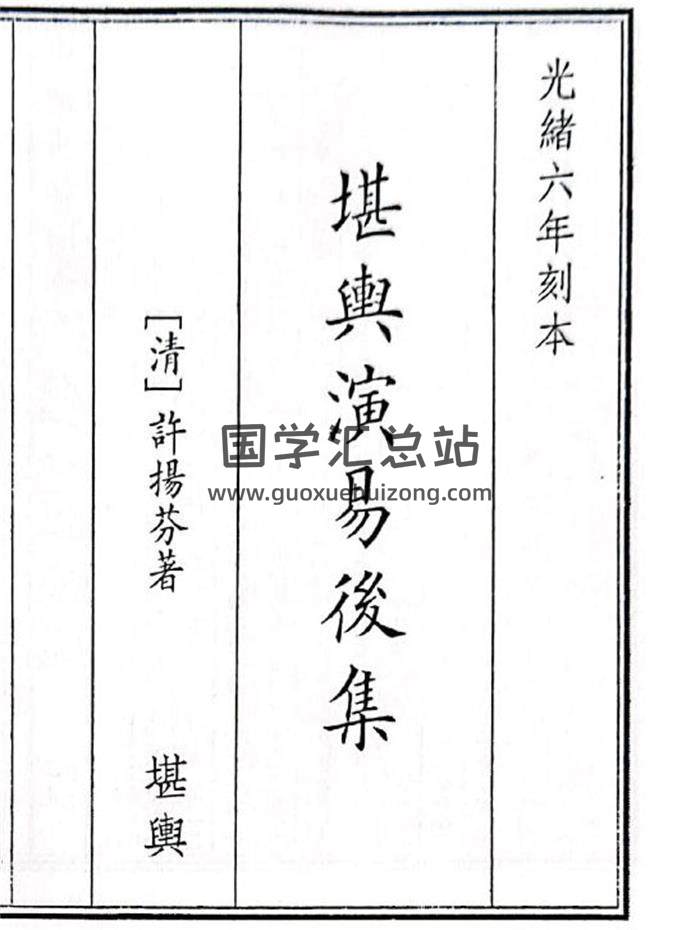 光緒六年刻本
堪輿演易後集
［清］許揚芬著
堪輿
国学汇总站
www.guoxuehuizong.com